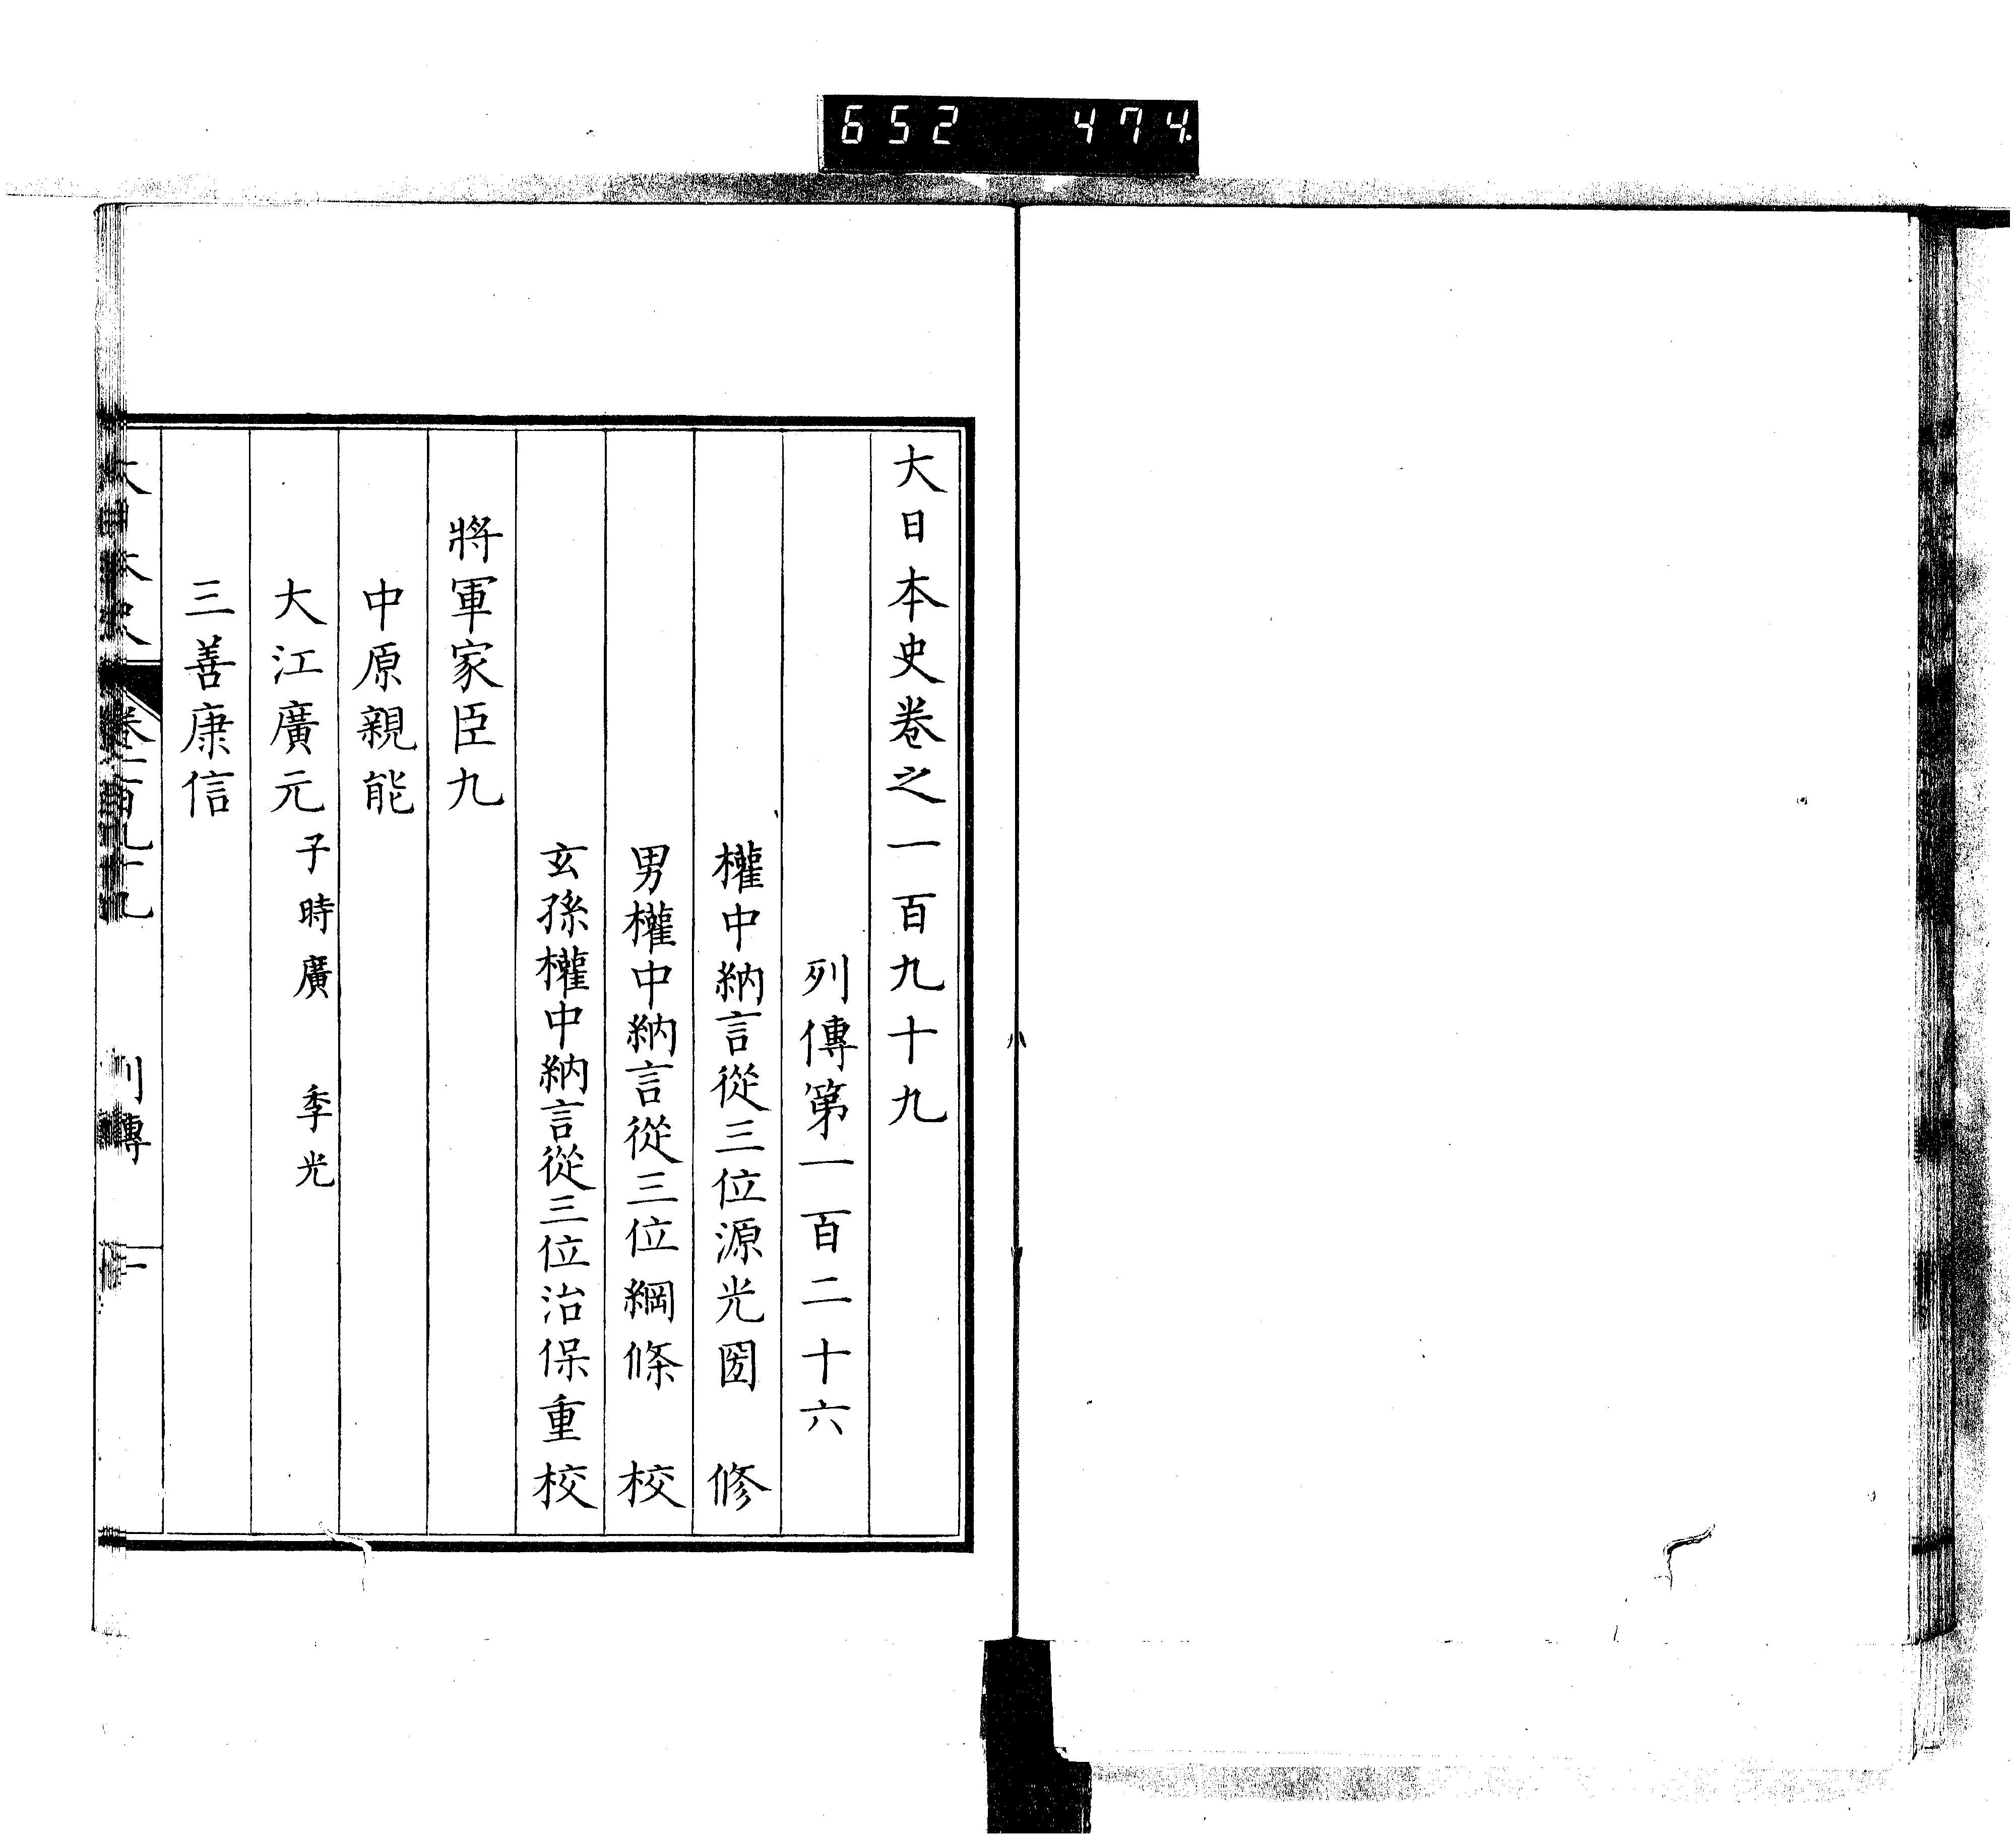 652 474
大日本史卷之一百九十九
列傳第一百二十六
權中納言從三位源光圀 修
男權中納言從三位綱條 校
玄孫權中納言從三位治保重校
將軍家臣九
中原親能
大江廣元 子時廣 季光
三善康信
大日本史 卷一百九十九 列傳 一